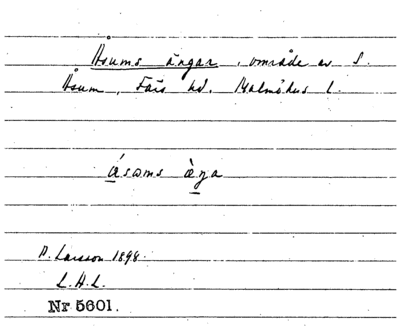 Åsums ängar, område av S.
Åsum, Färs hd. Malmöhus l.
ásoms æŋa
A. Larsson 1898.
L.H.L.
Nr 5601.